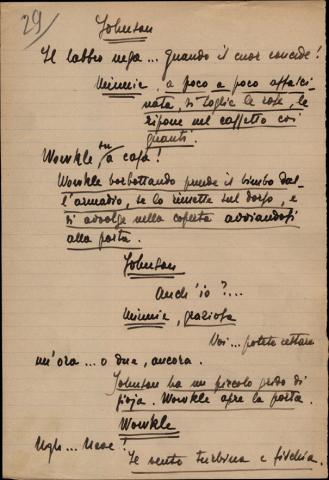 29
Johnson
Il labbro nega... quando il cuor concede!
Minnie, a poco a poco affasci-
nata, si toglie le rose, le
ripone nel cassetto coi
guanti.
Wowkle su a casa!
Wowkle borbottando prende il bimbo dal-
l'armadio, se lo rimette sul dorso, e
si avvolge nella coperta avviandosi
alla porta.
Johnson
Anch'io?...
Minnie, graziosa
Voi... potete restare
un'ora... o due, ancora.
Johnson ha un piccolo grido di
gioja. Wowkle apre la porta.
Wowkle
Ugh... Neve!
Il vento turbina e fischia.